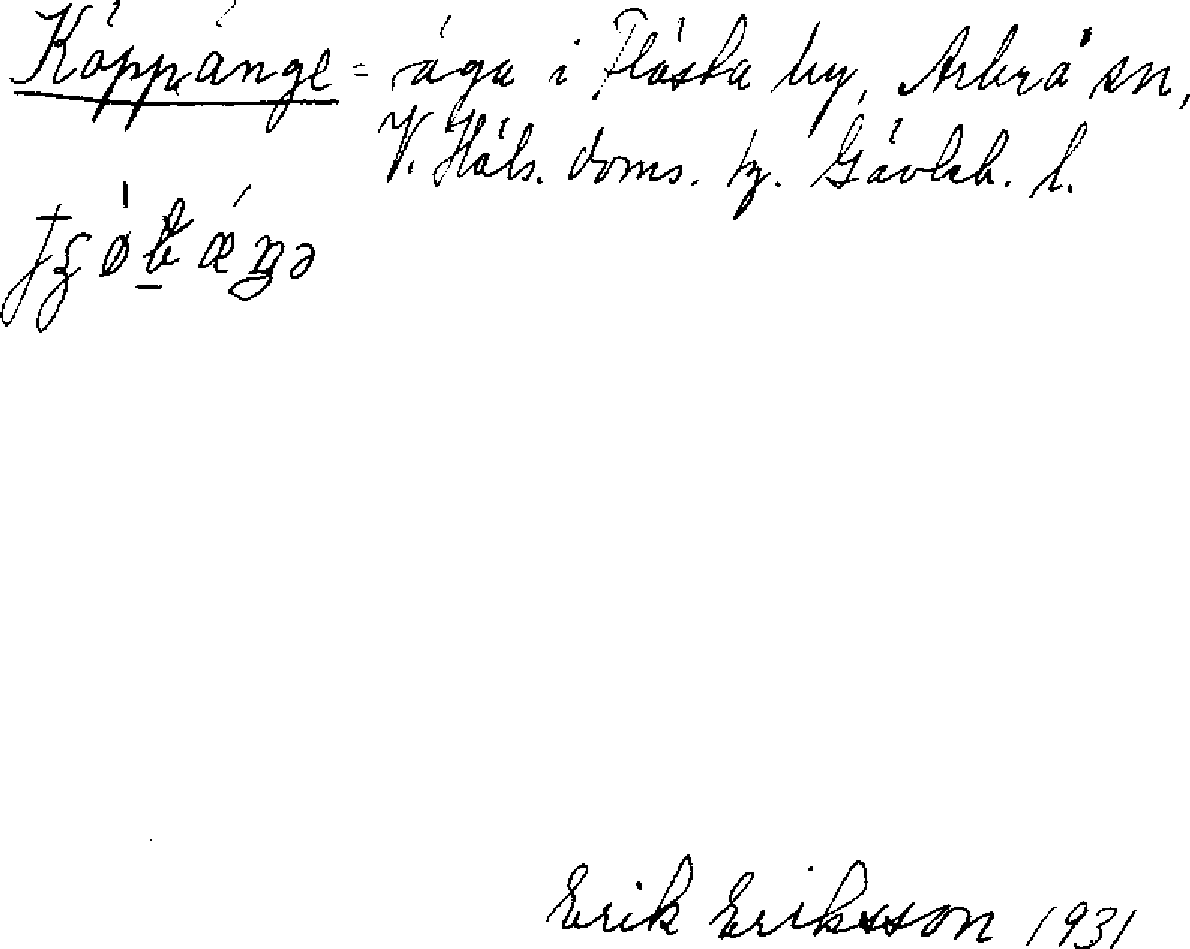 Köppänge = äga i Flästa by, Arbrå sn,
V. Häls. doms. tg. Gävleb. l.
Erik Eriksson 1931